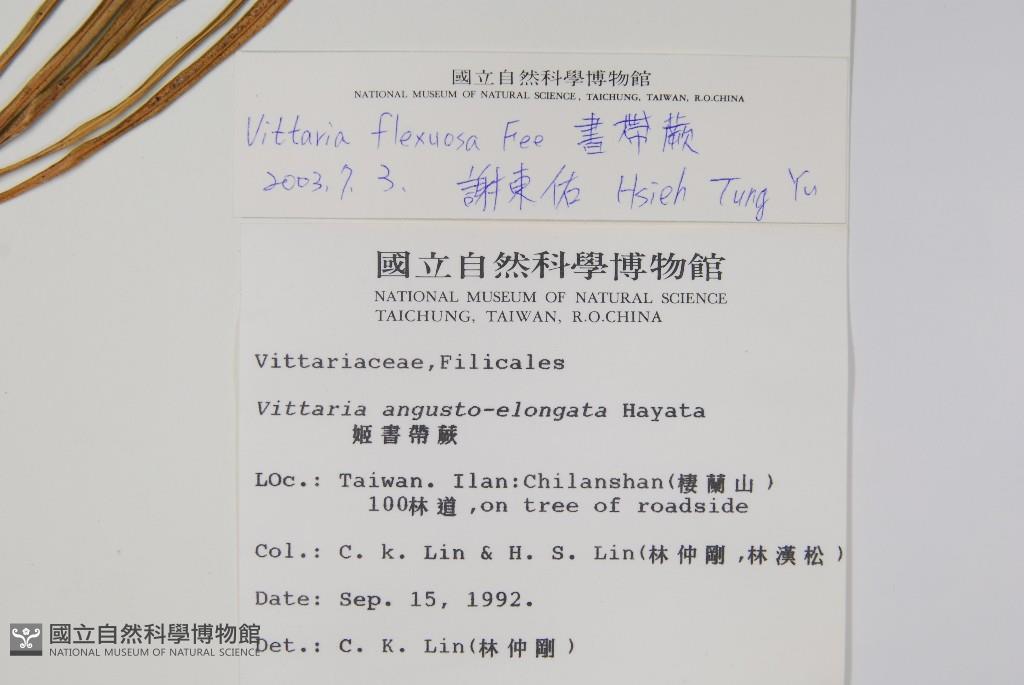 國立自然科學博物館
NATIONAL MUSEUM OF NATURAL SCIENCE, TAICHUNG, TAIWAN, R.O.CHINA
Vittaria flexuosa Fee 書帶蕨
2003.7.3. 謝東佑 Hsieh Tung Yu
國立自然科學博物館
NATIONAL MUSEUM OF NATURAL SCIENCE
TAICHUNG, TAIWAN, R.O.CHINA
Vittariaceae,Filicales
Vittaria angusto-elongata Hayata
姬書帶蕨
LOc.: Taiwan. Ilan:Chilanshan(棲蘭山)
100林道,on tree of roadside
Col.: C. k. Lin & H. S. Lin(林仲剛,林漢松)
Date: Sep. 15, 1992.
Det.: C. K. Lin(林仲剛)
國立自然科學博物館
NATIONAL MUSEUM OF NATURAL SCIENCE